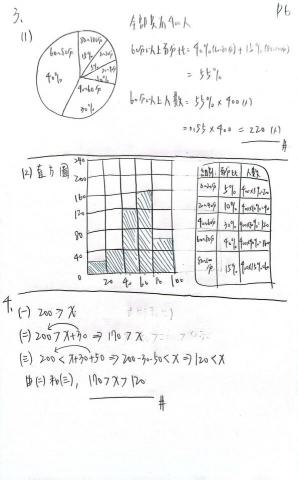 P6
3.
(1)
全部共有400人
60分以上百分比=40%(60-80分)+15%(80-100分)
=55%
60分以上人數=55%×400(人)
=0.55×400=220(人)
#
60-80分
40%
80-100分
15%
5%
10%
40-60分
30%
(2) 直方圖
240
200
160
120
80
40
20 40 60 80 100
百分比 人數
0-20分 5% 400×5%=20
20-40分 10% 400×10%=40
40-60分 30% 400×30%=120
60-80分 40% 400×40%=160
80-100分 15% 400×15%=60
4.
(一) 200>x
(二) 200>x+30⇒170>x
(三) 200<x+30+50⇒200-30-50<x⇒120<x
由(二)和(三), 170>x>120
#